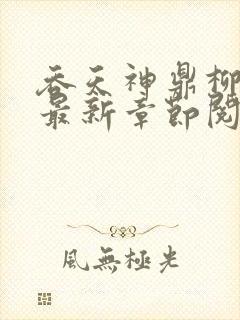 吞天神鼎柳
最新章節閱
風無極光